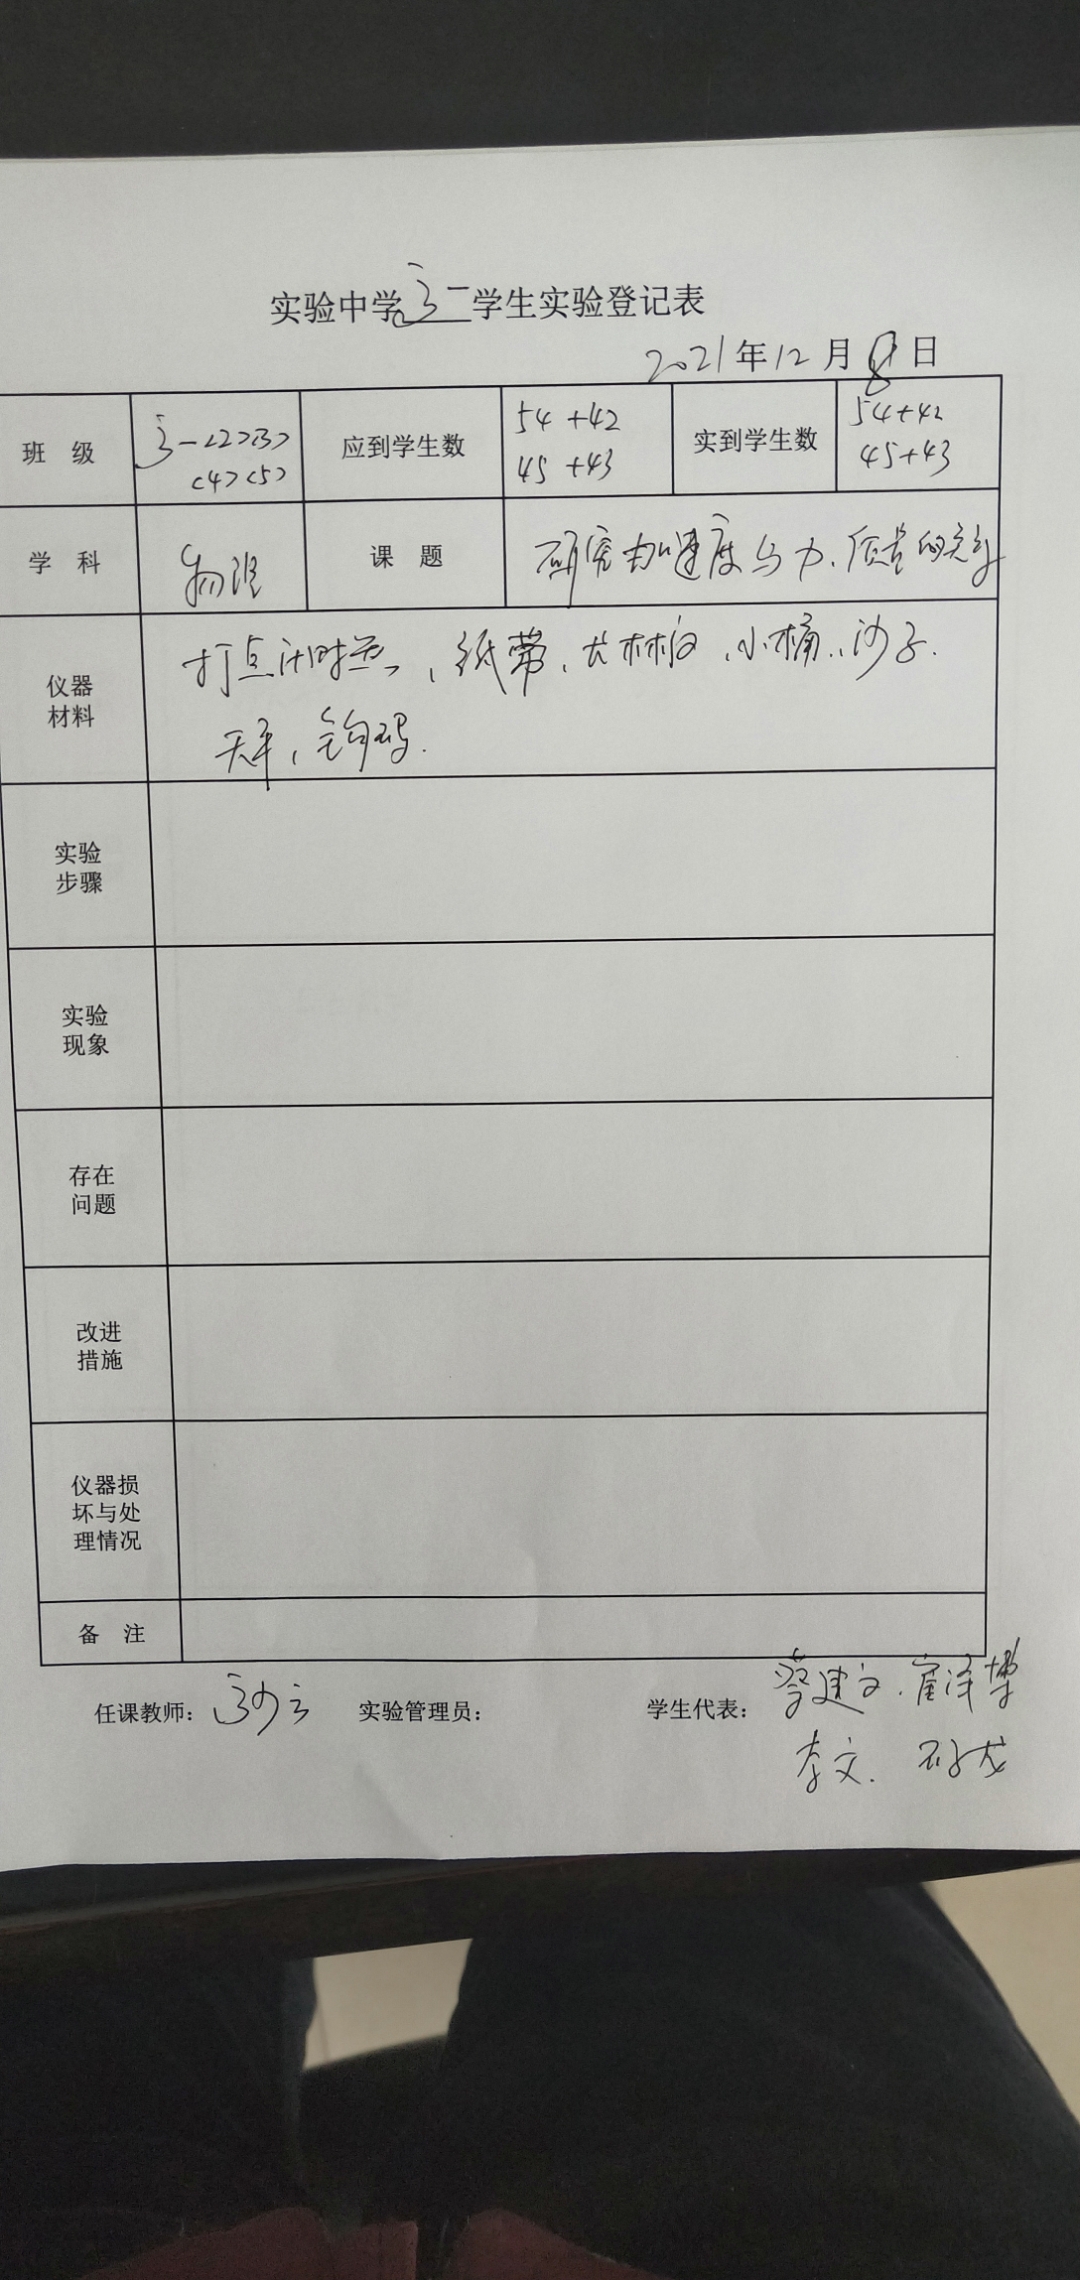 实验中学高一学生实验登记表
2021年12月8日
班 级 高一<2><3> <4><5> 应到学生数 54+42 45+43 实到学生数 54+42 45+43
学 科 物理 课 题 研究加速度与力、质量的关系
仪器材料 打点计时器、纸带、长木板、小桶、沙子、
天平、钩码.
实验步骤
实验现象
存在问题
改进措施
仪器损坏与处理情况
备 注
任课教师： 实验管理员： 学生代表：蔡建文、崔泽博
李文、